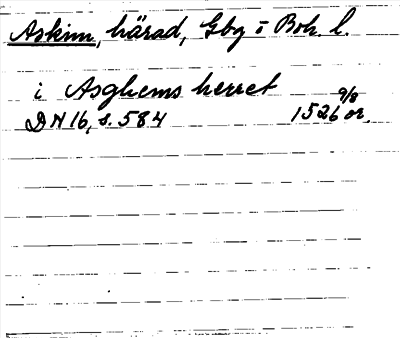 Askim, härad, Gbg o Boh l.
i Asghems herret
9/8
DN 16, s. 584 1526 or.